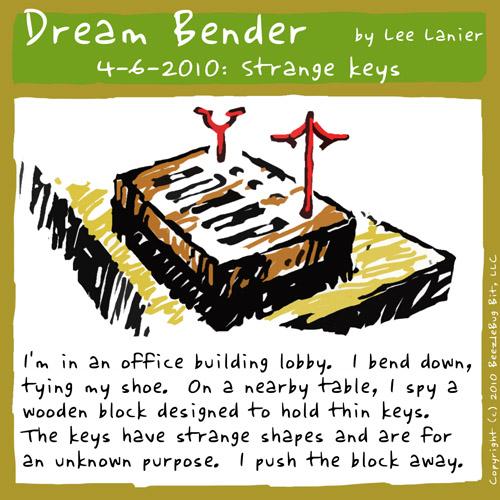 Dream Bender by Lee Lanier
4-6-2010: Strange keys
I'm in an office building lobby. I bend down,
tying my shoe. On a nearby table, I spy a
wooden block designed to hold thin keys.
The keys have strange shapes and are for
an unknown purpose. I push the block away.
Copyright (c) 2010 BeezleBug Bit, LLC